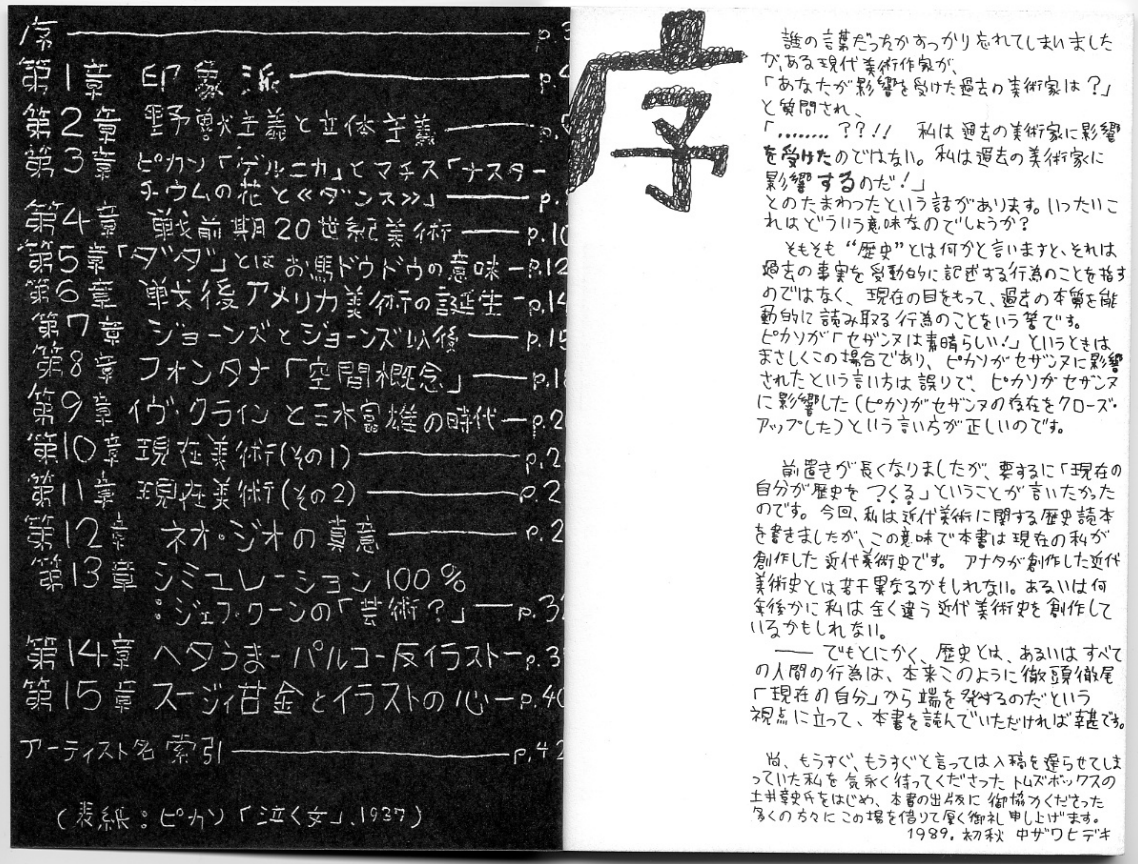 序 p.3
第1章 印象派 p.4
第2章 野獣主義と立体主義 p.
第3章 ピカソ「ゲルニカ」とマチス「ナスタ-
チウムの花と≪ダンス≫」 p.
第4章 戦前期20世紀美術 p.10
第5章「ダダ」とはお馬ドウドウの意味 p.12
第6章 戦後アメリカ美術の誕生 p.14
第7章 ジョーンズとジョーンズ以後 p.15
第8章 フォンタナ「空間概念」 p.1
第9章 イヴ・クラインと三木富雄の時代 p.2
第10章 現在美術(その1) p.2
第11章 現在美術(その2) p.2
第12章 ネオ・ジオの真意 p.2
第13章 シミュレーション100%
:ジェフ・クーンの「芸術?」 p.3
第14章 ヘタうま-パルコ-反イラスト p.3
第15章 スージィ甘金とイラストの心 p.40
アーティスト名索引 p.42
(表紙:ピカソ「泣く女」.1937)
序
誰の言葉だったかすっかり忘れてしまいました
が、ある現代美術作家が、
「あなたが影響を受けた過去の美術家は?」
と質問され、
「........??!! 私は過去の美術家に影響
を受けたのではない。私は過去の美術家に
影響するのだ!」
とのたまわったという話があります。いったいこ
れはどういう意味なのでしょうか?
そもそも“歴史”とは何かと言いますと、それは
過去の事実を受動的に記述する行為のことを指す
のではなく、現在の目をもって、過去の本質を能
動的に読み取る行為のことをいう筈です。
ピカソが「セザンヌは素晴らしい!」というときは
まさしくこの場合であり、ピカソがセザンヌに影響
されたという言い方は誤りで、ピカソがセザンヌ
に影響した(ピカソがセザンヌの存在をクローズ・
アップした)という言い方が正しいのです。
前置きが長くなりましたが、要するに「現在の
自分が歴史をつくる」ということが言いたかった
のです。今回、私は近代美術に関する歴史読本
を書きましたが、この意味で本書は現在の私が
創作した近代美術史です。アナタが創作した近代
美術史とは若干異なるかもしれない。あるいは何
年後かに私は全く違う近代美術史を創作して
いるかもしれない。
── でもとにかく、歴史とは、あるいはすべて
の人間の行為は、本来このように徹頭徹尾
「現在の自分」から端を発するのだという
視点に立って、本書を読んでいただければ幸甚です。
尚、もうすぐ、もうすぐと言っては入稿を遅らせてしま
っていた私を気永く待ってくださったトムズボックスの
土井章史氏をはじめ、本書の出版に御協力くださった
多くの方々にこの場を借りて厚く御礼申し上げます。
1989. 初秋 中ザワヒデキ